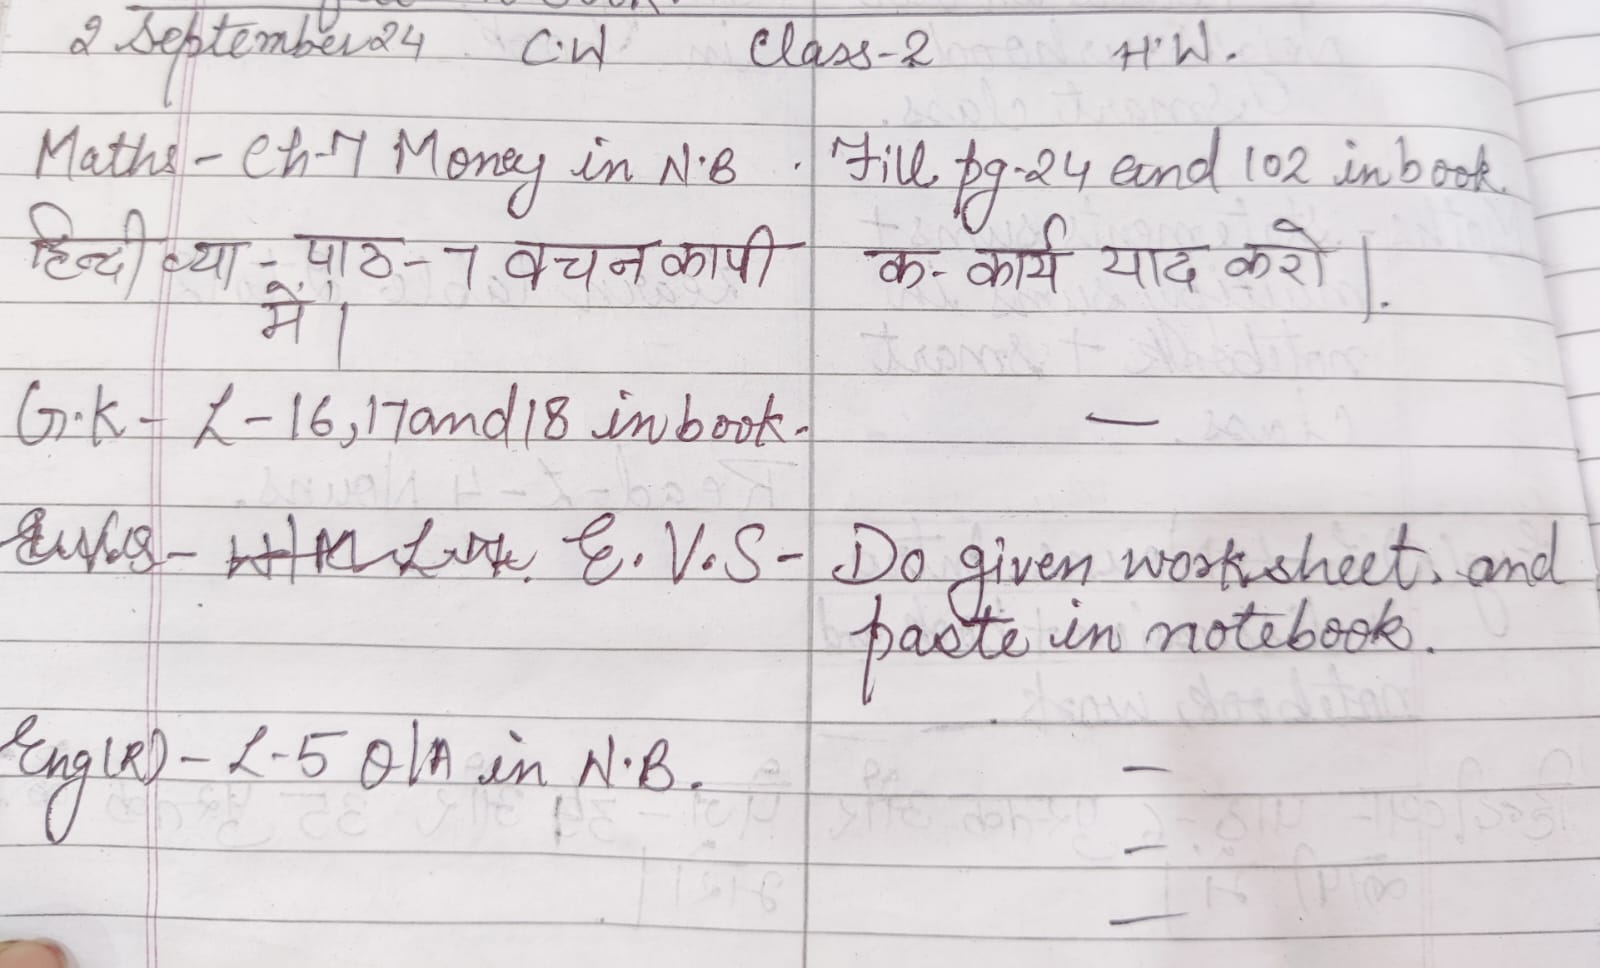 2 September 24 C.W Class-2 H.W.
Maths - Ch-7 Money in N.B . Fill pg-24 and 102 in book.
हिन्दी व्या - पाठ - 7 वचन कापी क. कार्य याद करो।
में।
G.K - L-16, 17 and 18 in book. —
E.V.S - Do given worksheet. and
paste in notebook.
Eng(R) - L-5 Q/A in N.B. —
—
—